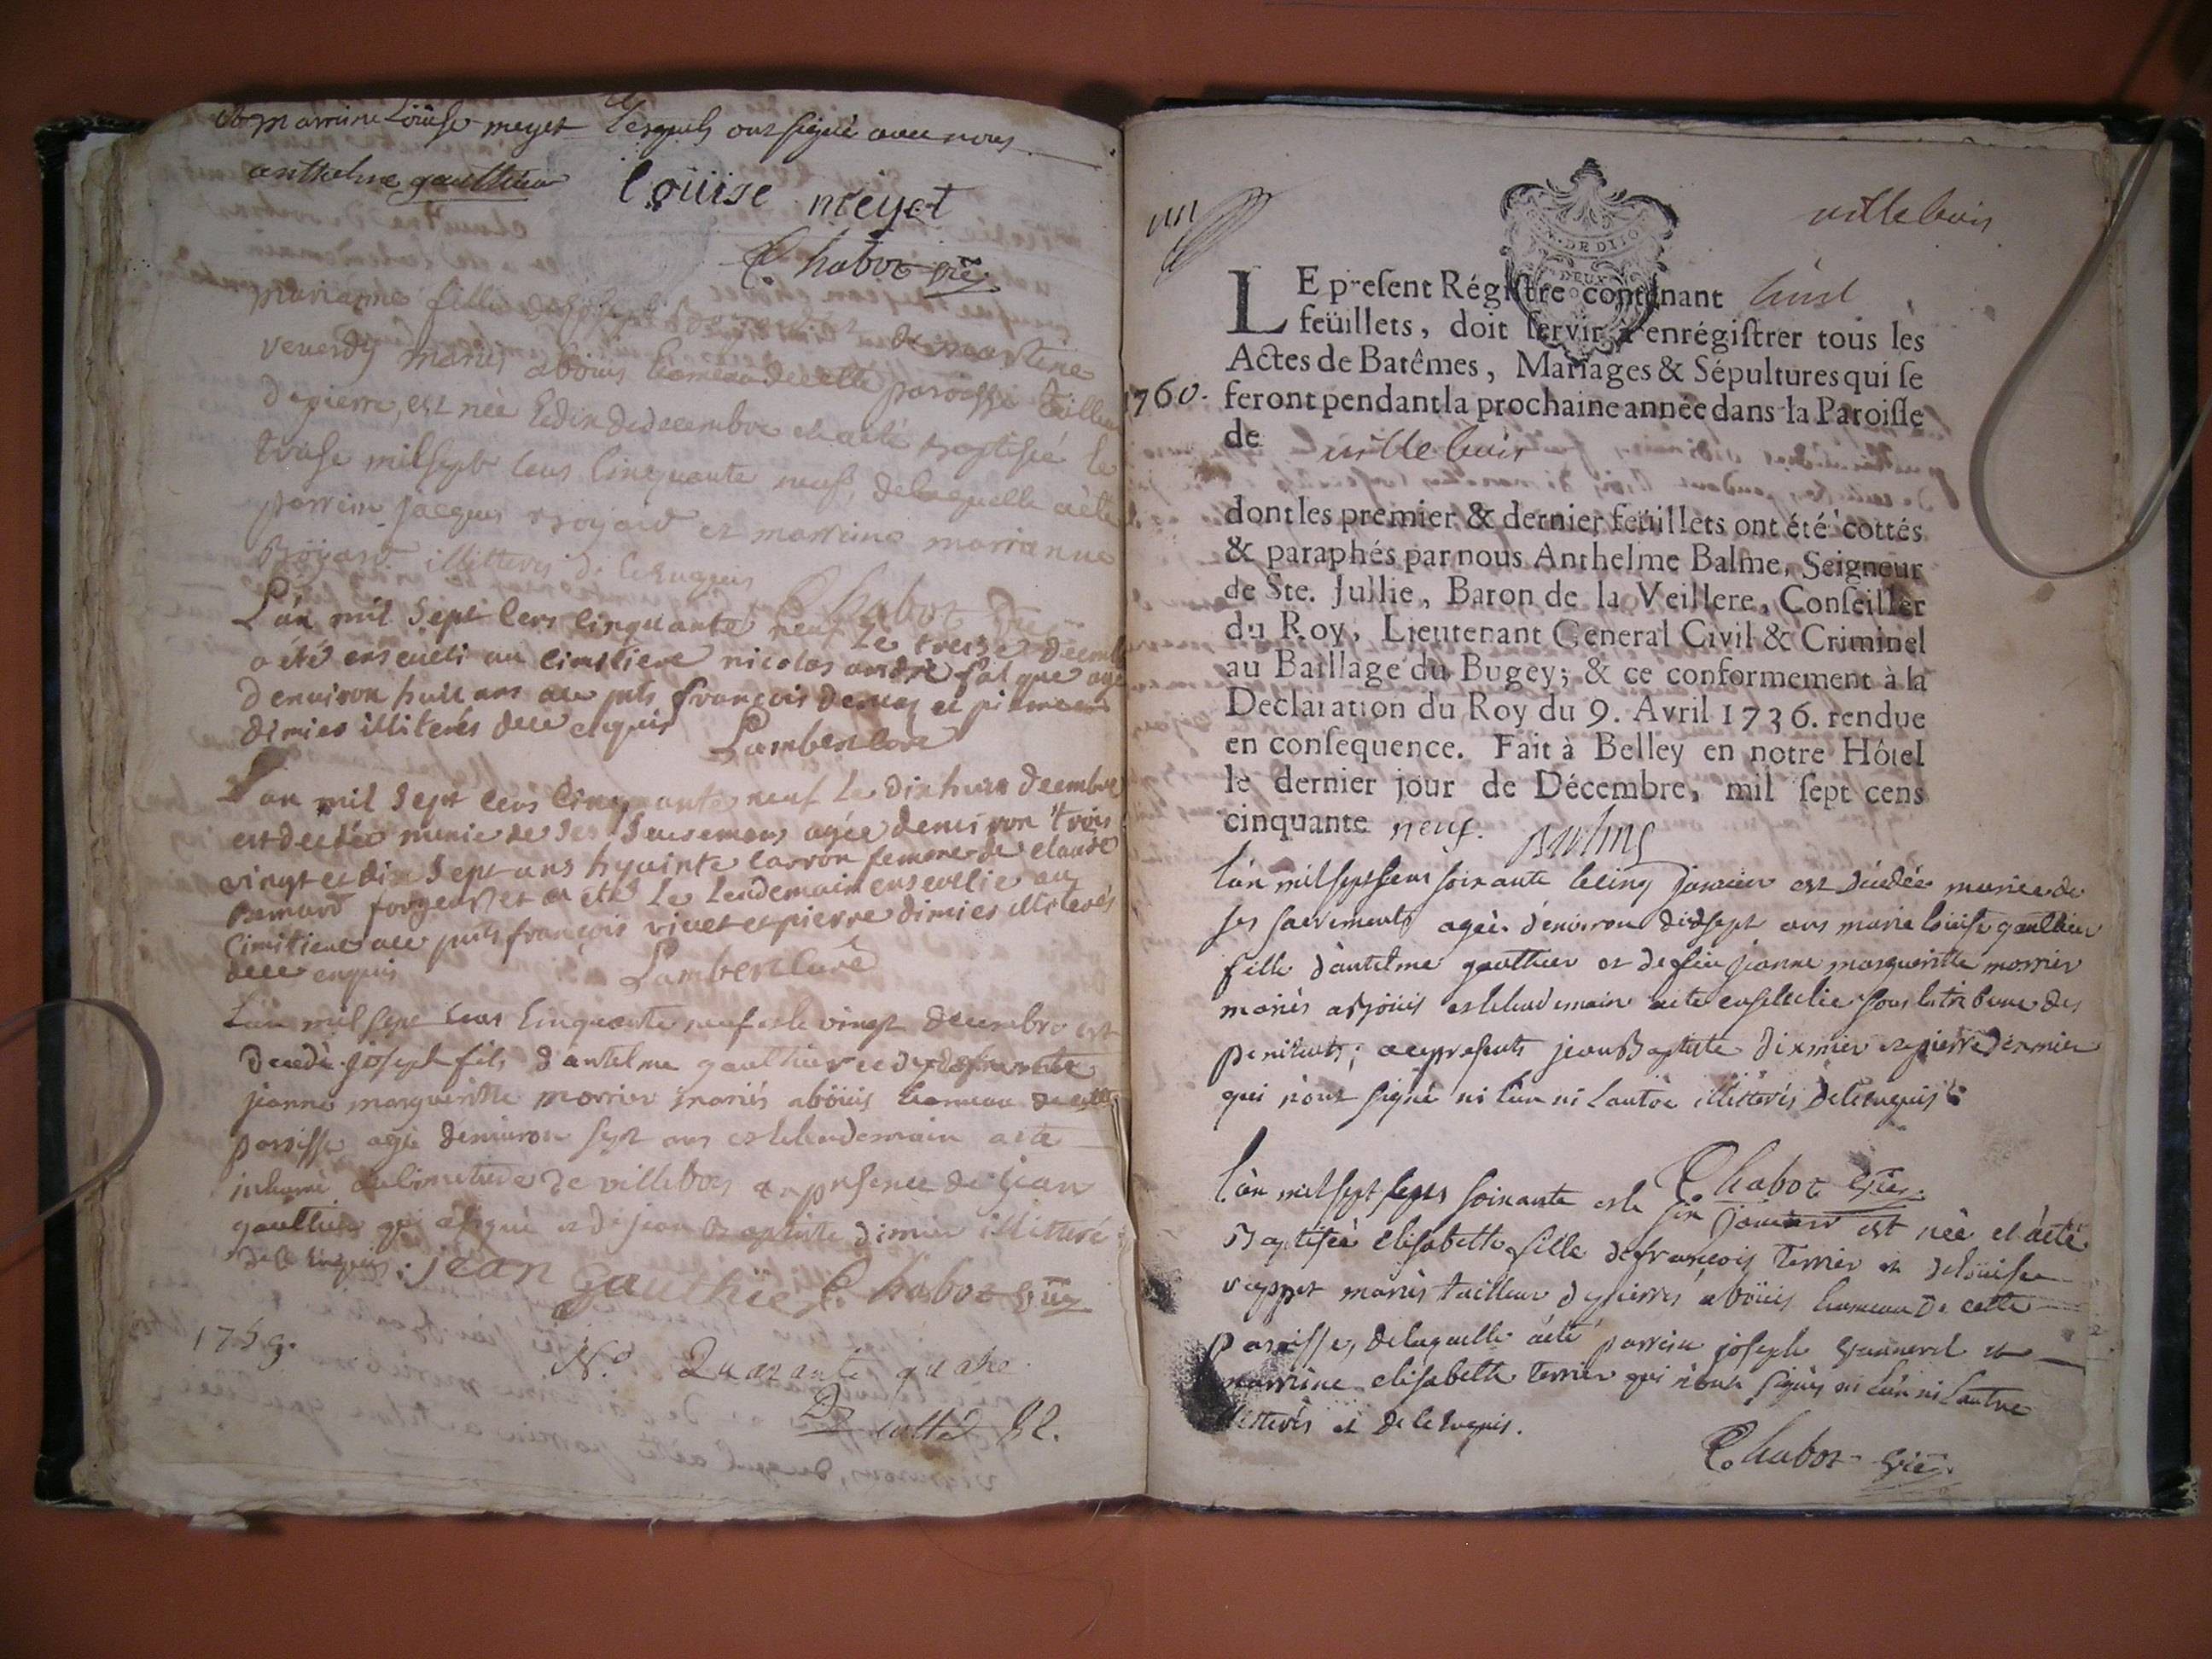 marrine Loüise meyet lesquels ont signé avec nous
anthelme gaulthier louise meyet
Chabot vic.
marianne fille de joseph et de
mariés aboüis hameau de cette paroisse tailleur
de pierre, est née le dix de decembre et a eté baptisée le
treise mil sept cens cinquante neuf, de laquelle a eté
parrin jacques et marrine marianne
illitterés de ce enquis
Chabot vic.
L'an mil sept cens cinquante neuf le treise decembre
a été enseveli au cimitiere nicolas andré
d'environ huit ans françois et pierre
dimier illiterés de ce enquis Lambert curé
L'an mil sept cens cinquante neuf le dix huit decembre
est decedée munie de ses sacremens agée d'environ trois
vingt et dix sept ans hyacinte carron femme de claude
Bernard et a été le lendemain ensevelie au
cimitiere françois vivet et pierre dimier illiterés
de ce enquis Lambert curé
L'an mil sept cens cinquante neuf et le vingt decembre est
decedé joseph fils d'antelme gaulthier et de defunte
jeanne margueritte morrier mariés aboüis hameau de cette
paroisse agé d'environ sept ans et le lendemain a eté
inhumé au cimetiere de villebois en presence de jean
gaulthier qui a signé et de jean Baptiste dimier illitteré
de ce enquis. jean gauthier Chabot vic.
1759.
N.o Quarante quatre
cotté
villebois
LE present Régistre contenant huit
feüillets, doit servir à enrégistrer tous les
Actes de Batêmes, Mariages & Sépultures qui se
1760. feront pendant la prochaine année dans la Paroisse
de villebois
dont les premier & dernier feüillets ont été cottés
& paraphés par nous Anthelme Balme, Seigneur
de Ste. Jullie, Baron de la Veillere, Conseiller
du Roy, Lieutenant General Civil & Criminel
au Baillage du Bugey; & ce conformement à la
Declaration du Roy du 9. Avril 1736. rendue
en consequence. Fait à Belley en notre Hôtel
le dernier jour de Décembre, mil sept cens
cinquante neuf. Balme
L'an mil sept cens soixante le cinq janvier est décedée munie de
ses sacrements agée d'environ dixsept ans marie loüise gaulthier
fille d'antelme gaulthier et de feu jeanne margueritte morrier
mariés aboüis et le lendemain a eté ensevelie sous la tribune des
penitents; jean Baptiste dixmier et pierre dixmier
qui n'ont signé ni l'un ni l'autre illitterés de ce enquis
Chabot vic.
L'an mil sept cens soixante et le six janvier est née et a eté
Baptisée elisabette fille de françois Terrier et de loüise
mariés tailleur de pierres aboüis hameau de cette
paroisse, de laquelle a eté parrin joseph et
marrine elisabette Terrier qui n'ont signés ni l'un ni l'autre
illitterés et de ce enquis.
Chabot vic.